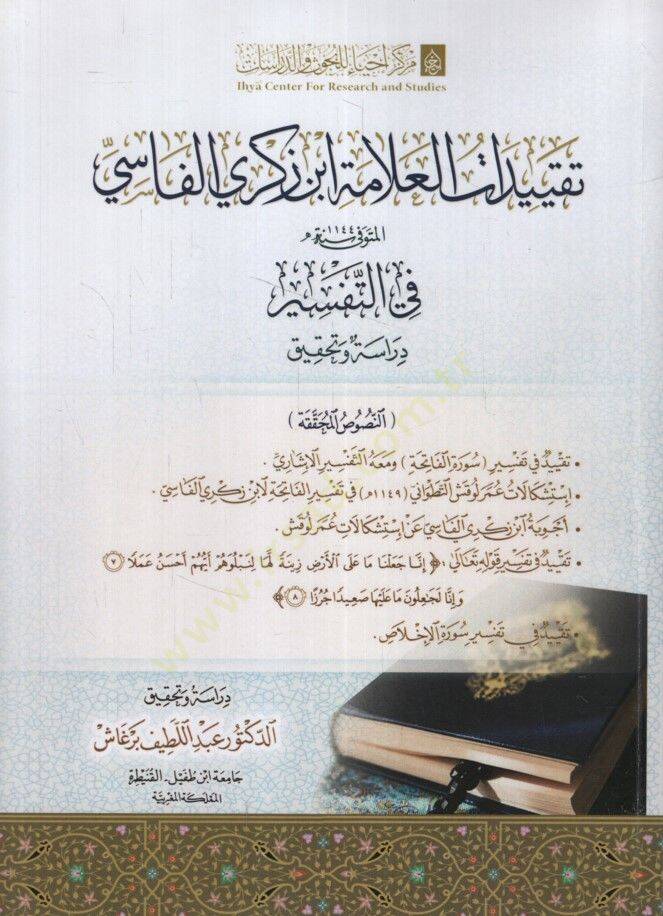 مركز إحياء للبحوث والدراسات
Ihyā Center For Research and Studies
تقييدات العلامة ابن زكري الفاسي
المتوفى سنة ١١٤٤هـ
في التفسير
دراسة وتحقيق
(النصوص المحققة)
• تقييد في تفسير (سورة الفاتحة) ومعه التفسير الإشاري.
• إستشكالات عمر لوقش التطواني (١١٤٩هـ) في تفسير الفاتحة لابن زكري الفاسي.
• أجوبة ابن زكري الفاسي عن إستشكالات عمر لوقش.
• تقييد في تفسير قوله تعالى: ﴿إنا جعلنا ما على الأرض زينة لها لنبلوهم أيهم أحسن عملا ٧
وإنا لجعلون ما عليها صعيدا جرزا ٨﴾
• تقييد في تفسير سورة الإخلاص.
دراسة وتحقيق
الدكتور عبد اللطيف برغاش
جامعة ابن طفيل - القنيطرة
المملكة المغربية